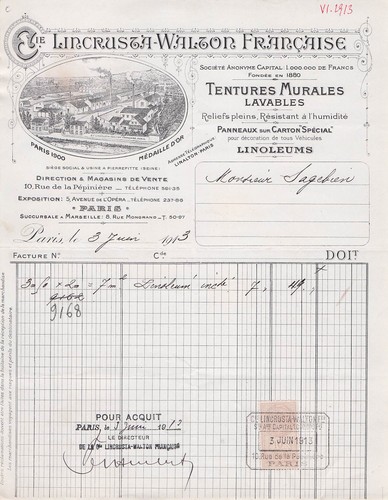 C
VI-1913
Cie LINCRUSTA-WALTON FRANÇAISE
SOCIÉTÉ ANONYME CAPITAL: 1.000.000 DE FRANCS
FONDÉE EN 1880
TENTURES MURALES
LAVABLES
Reliefs pleins, Résistant à l'humidité
PANNEAUX SUR CARTON "SPÉCIAL"
pour décoration de tous Véhicules
LINOLEUMS
PARIS 1900
MÉDAILLE D'OR
ADRESSE TÉLÉGRAPHIQUE
LINALTON-PARIS
SIÈGE SOCIAL & USINE À PIERREFITTE (SEINE)
DIRECTION & MAGASINS DE VENTE
10, Rue de la Pépinière — TÉLÉPHONE
EXPOSITION: 5, AVENUE DE L'OPÉRA. TÉLÉPHONE
PARIS
SUCCURSALE À MARSEILLE: 8, RUE MONGRAND
Monsieur Sagebien
Paris, le 3 Juin 1913
FACTURE No
Cde
DOIT
3m50 × 2m = 7m2 Linoleum incté 7, 49,
9168
POUR ACQUIT
PARIS, le 3 Juin 1913
LE DIRECTEUR
DE LA Cie LINCRUSTA-WALTON FRANÇAISE
Cie LINCRUSTA-WALTON
3 JUIN 1913
10, Rue de la Pépinière
PARIS